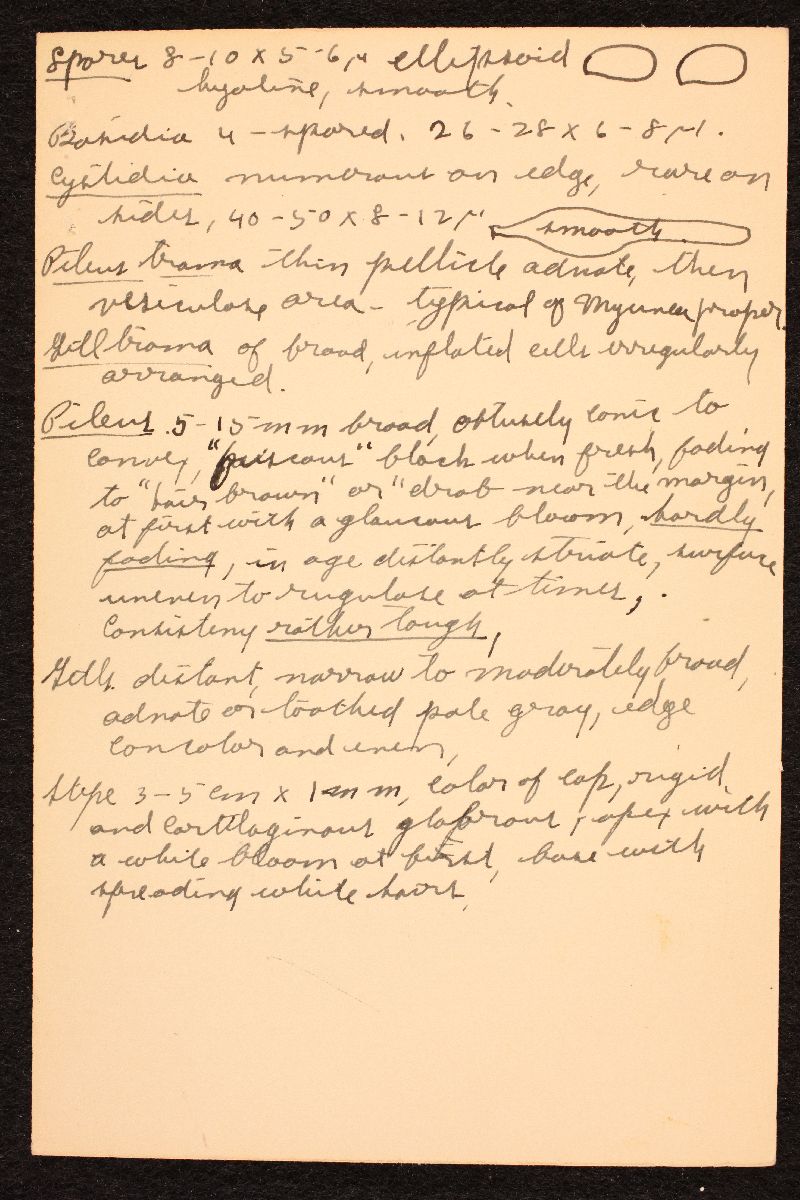 Spores 8-10 x 5-6 µ ellipsoid
hyaline, smooth.
Basidia 4-spored. 26-28 x 6-8 µ.
Cystidia numerous on edge, rare on
sides, 40-50 x 8-12 µ smooth.
Pileus trama thin pellicle adnate, then
vesiculose area - typical of Mycenea proper.
Gill trama of broad, inflated cells irregularly
arranged.
Pileus .5-15 mm broad, obtusely conic to
convex, "fuscous" black when fresh, fading
to "hair brown" or "drab near the margin,
at first with a glaucous bloom, hardly
fading, in age distantly striate, surface
uneven to rugulose at times,.
Consisteny rather tough,
Gills. distant, narrow to moderately broad,
adnate or toothed pale gray, edge
concolor and even,
Stipe 3-5 cm x 1 mm, color of cap, rigid
and cartilaginous glabrous, apex with
a white bloom at first, base with
spreading white hairs,